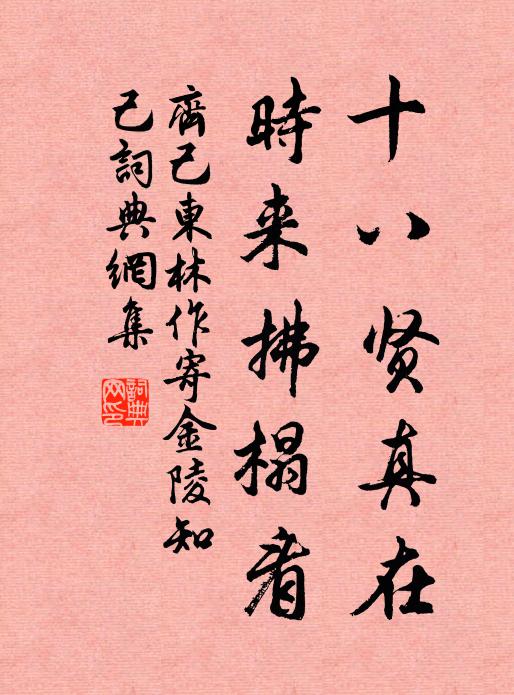 十八贤真在
時来拂榻看
齊己東林作寄金陵知
己詞典網集
詞典
网印